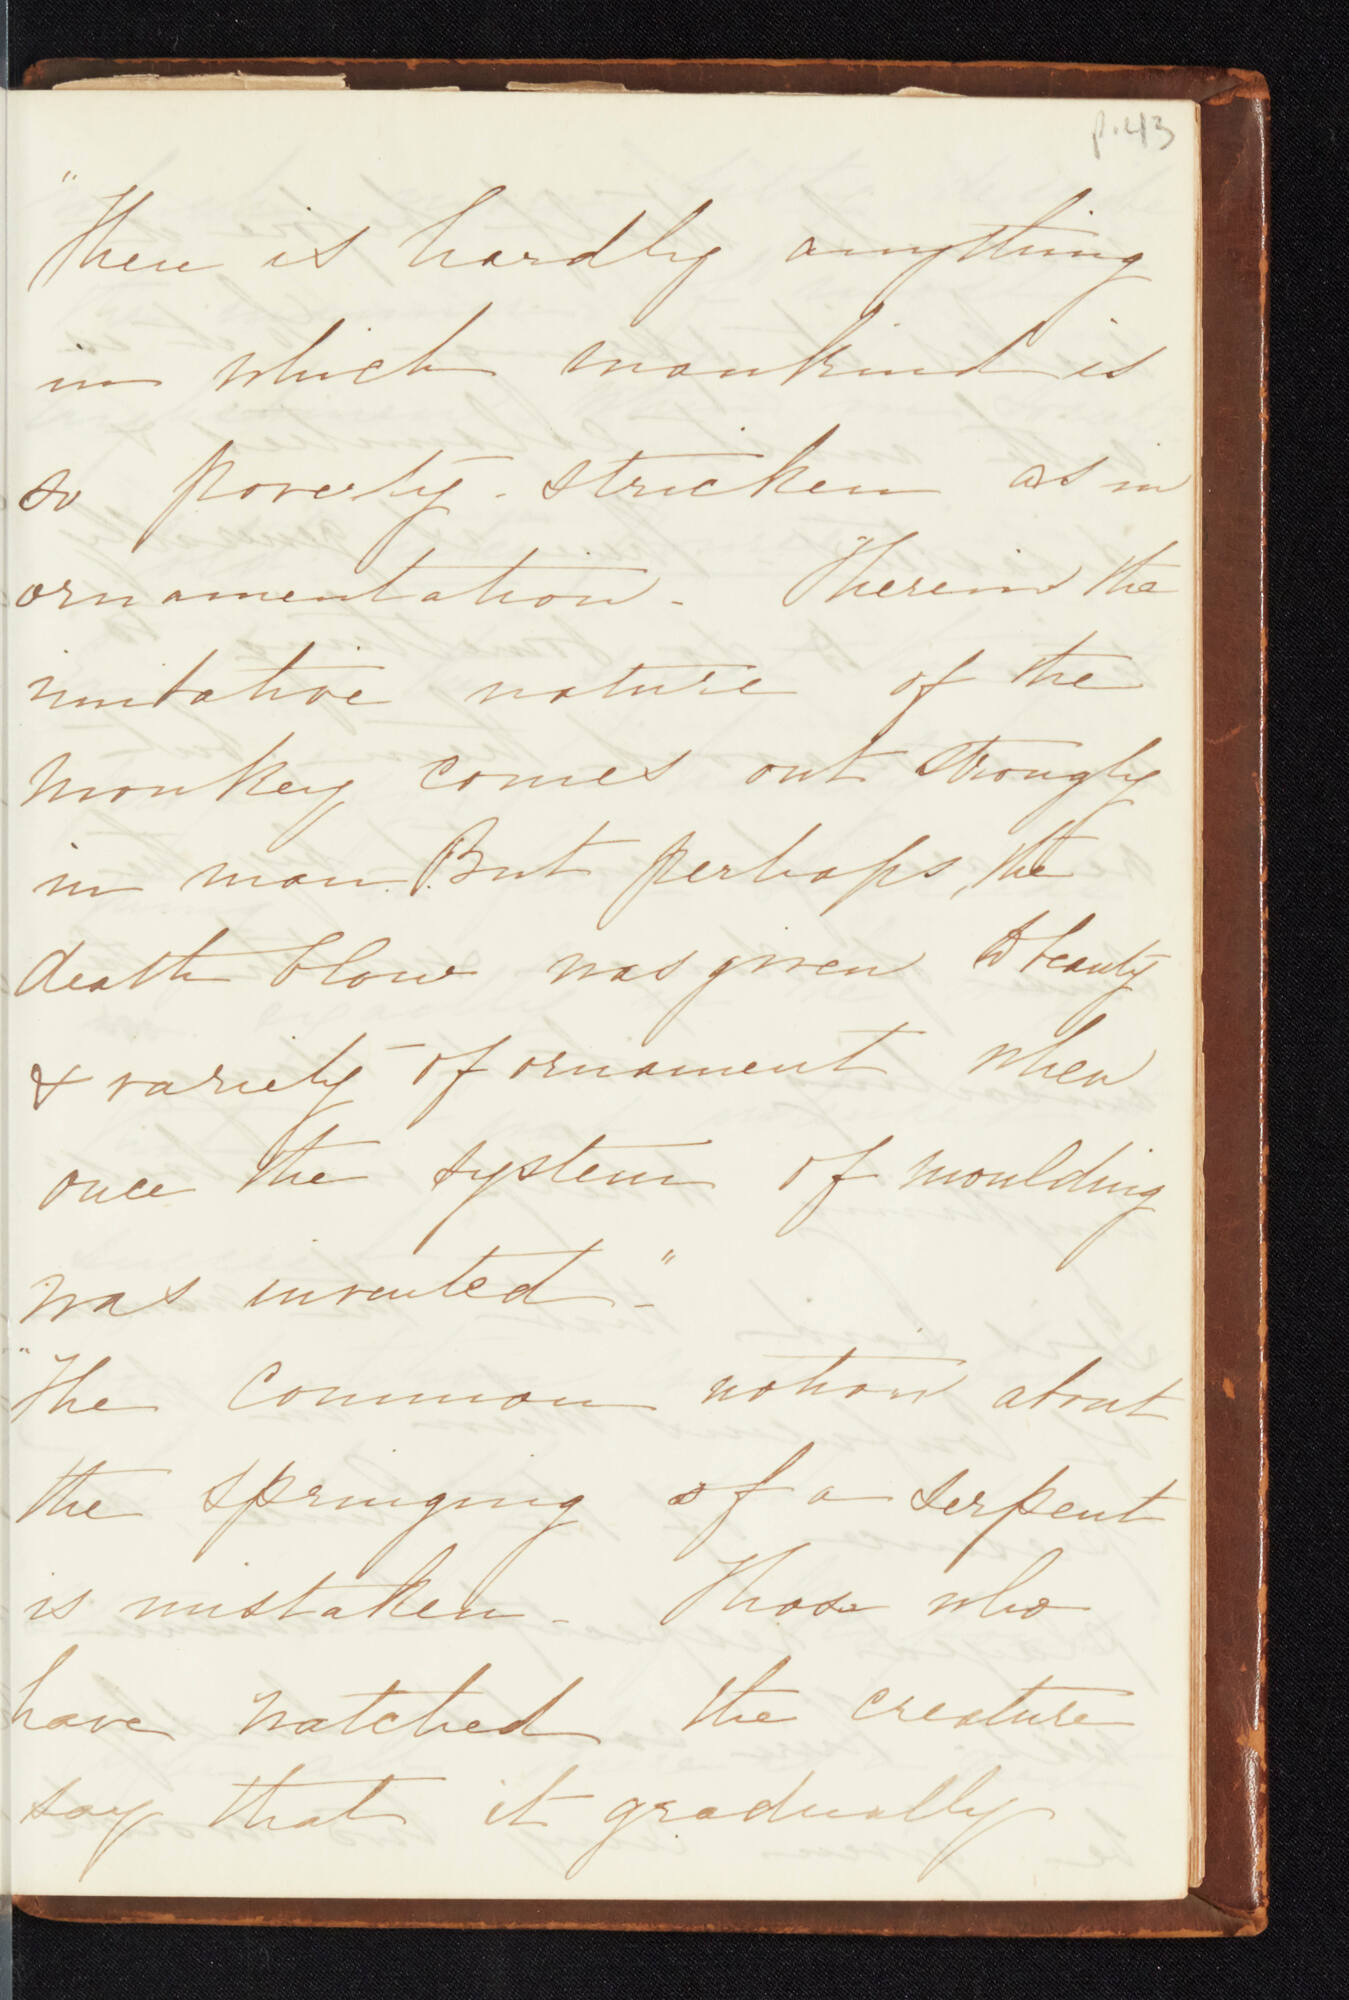 p. 43
"There is hardly anything
in which mankind is
so poverty-stricken as in
ornamentation - Therein the
imitative nature of the
monkey comes out strongly
in man. But perhaps, the
death blow was given to beauty
& variety of ornament when
once the system of moulding
was invented -"
"The common notion about
the springing of a serpent
is mistaken - Those who
have watched the creature
say that it gradually